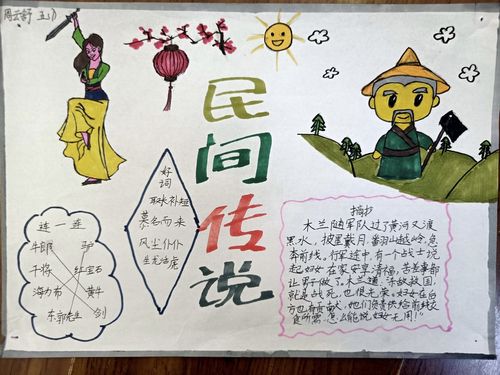 周云舒 五(1)
民间传说
好词
取长补短
慕名而来
风尘仆仆
生龙活虎
连一连
牛郎 驴
干将 红宝石
海力布 黄牛
东郭先生 剑
摘抄
木兰随军队过了黄河又渡
黑水，披星戴月，翻山越岭，急
奔前线。行军途中，有个战士说
起妇女在家安享清福，苦差事都
让男子做了。木兰道：
就是战死，也很光荣。妇女在后
方也有贡献，她们负责供给前线衣
食所需，怎么能说妇女无用！”